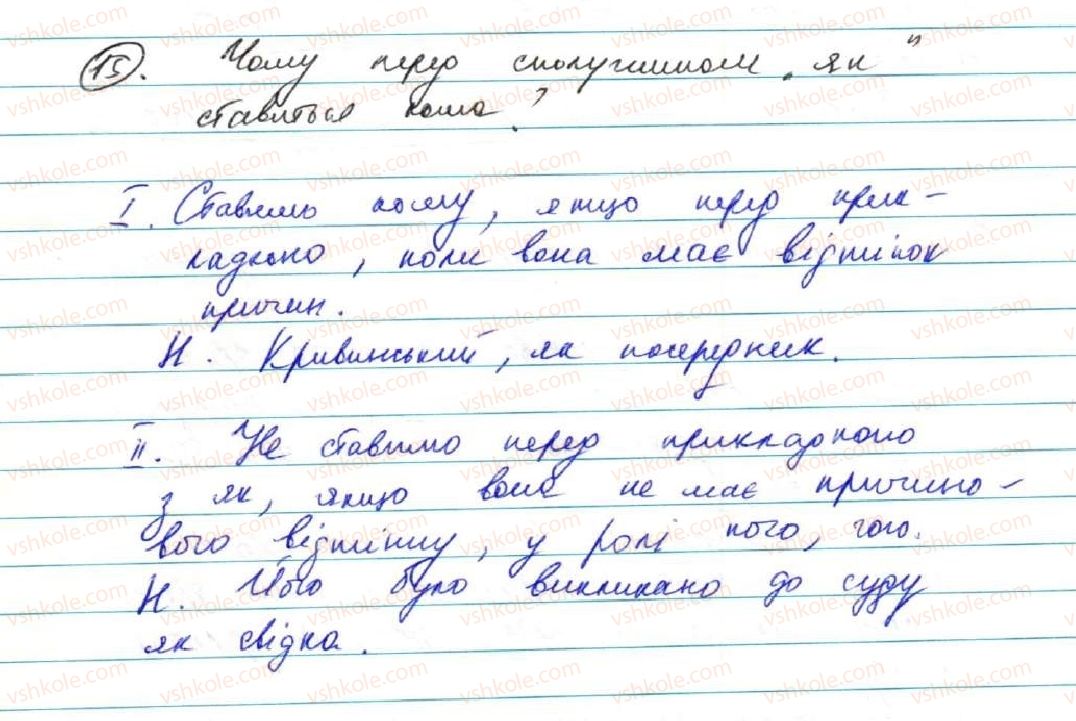 15. Чому перед сполучником „як"
ставиться кома?
I. Ставимо кому, якщо перед прик-
ладкою, коли вона має відтінок
причин.
Н. Кривинський, як посередник.
II. Не ставимо перед прикладкою
з як, якщо вона не має причино-
вого відтінку, у ролі кого, чого.
Н. Його було викликано до суду
як свідка.